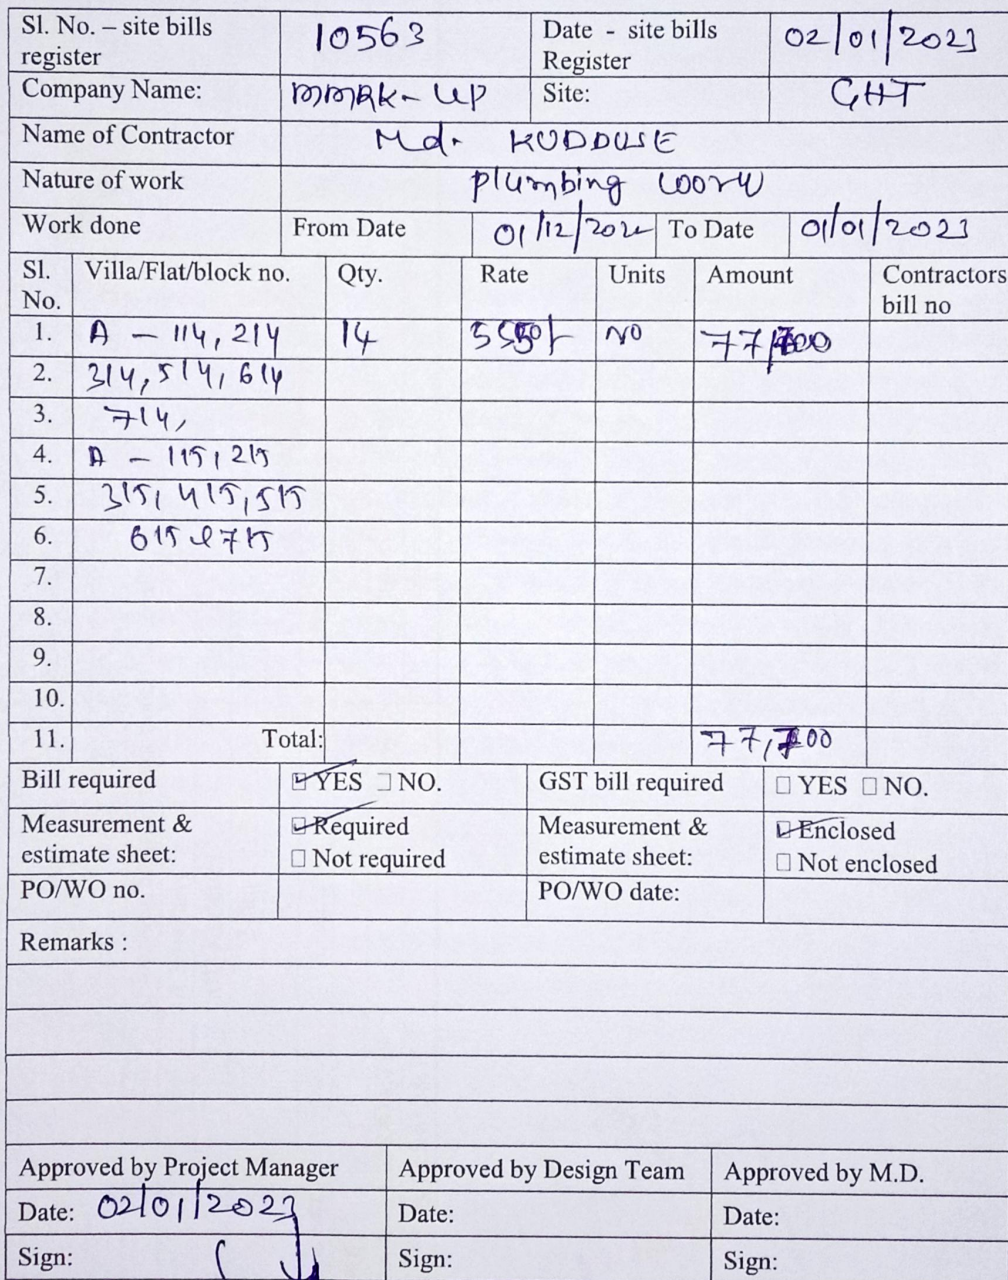 Sl. No. – site bills register 10563 Date - site bills Register 02/01/2023
Company Name: MMRK-UP Site: GHT
Name of Contractor Md. KUDDUSE
Nature of work plumbing work
Work done From Date 01/12/2022 To Date 01/01/2023
Sl. No. Villa/Flat/block no. Qty. Rate Units Amount Contractors bill no
1. A - 114, 214 14 5550/- NO 77,700
2. 314, 514, 614
3. 714,
4. A - 115, 215
5. 315, 415, 515
6. 615 & 715
7.
8.
9.
10.
11. Total: 77,700
Bill required ☑ YES ☐ NO. GST bill required ☐ YES ☐ NO.
Measurement & estimate sheet: ☑ Required Measurement & estimate sheet: ☑ Enclosed
☐ Not required ☐ Not enclosed
PO/WO no. PO/WO date:
Remarks :
Approved by Project Manager Approved by Design Team Approved by M.D.
Date: 02/01/2023 Date: Date:
Sign: Sign: Sign: